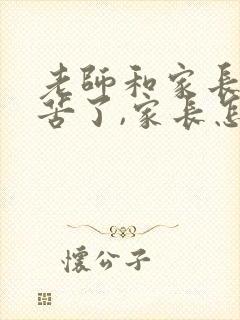 老師和家長
苦了,家長怎
懷公子